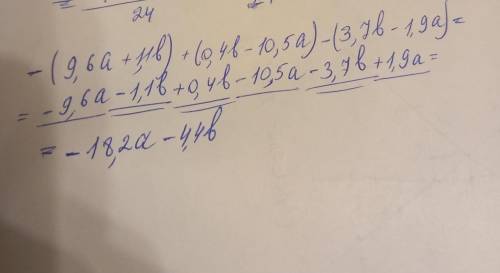 24
-(9,6a+1,1b)+(0,4b-10,5a)-(3,7b-1,9a)=
=-9,6a-1,1b+0,4b-10,5a-3,7b+1,9a=
=-18,2a-4,4b